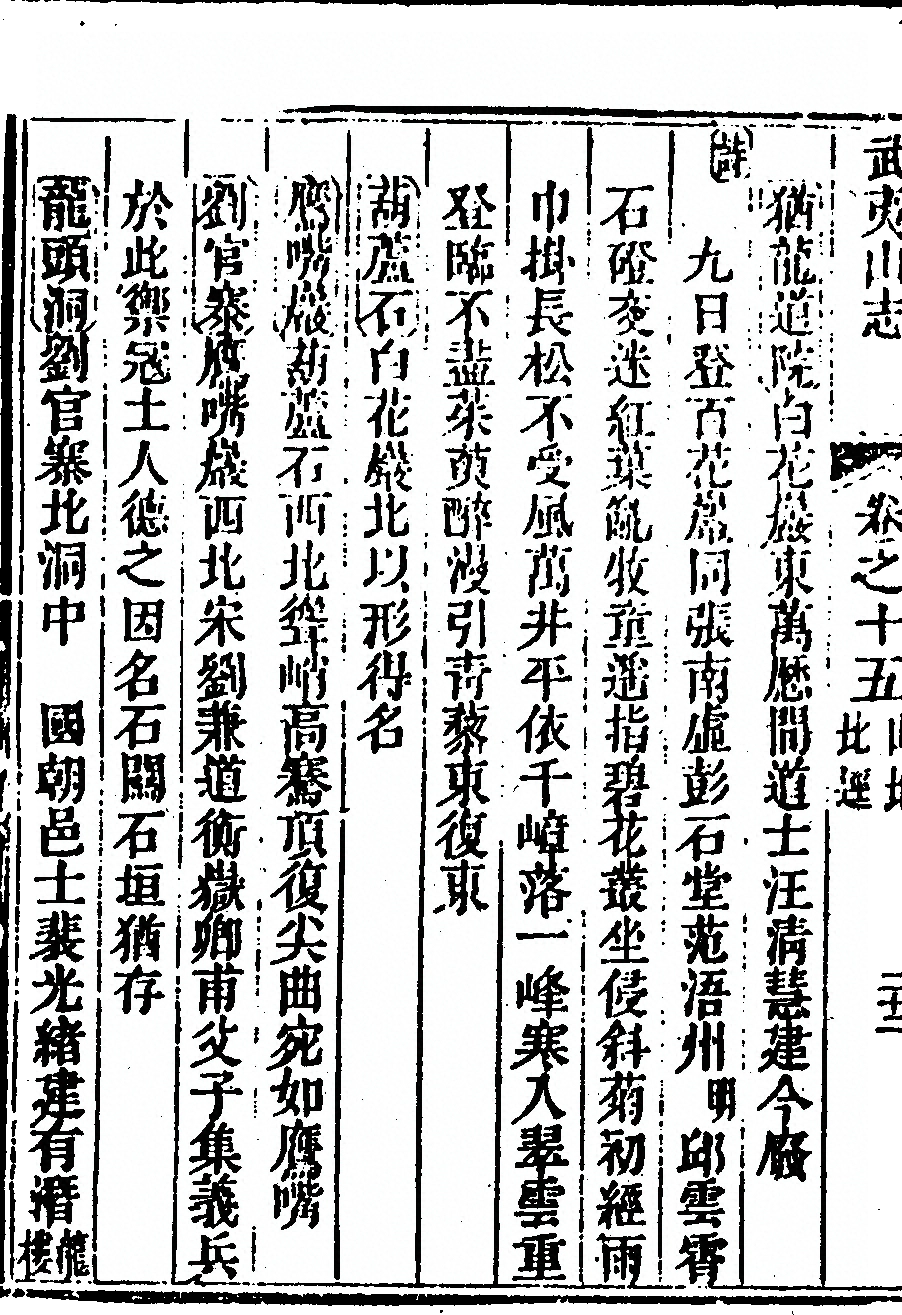 武夷山志
卷之十五
北
北逕
二十二
猶龍道院白花巖東萬歷間道士汪清慧建今廢
詩
九日登百花巖同張南虛彭石堂范浯州 明 邱雲霄
石磴交迷紅葉亂牧童遙指碧花叢坐侵斜菊初經雨
巾掛長松不受風萬井平依千嶂落一峰寒入翠雲重
登臨不盡茱萸醉漫引青藜東復東
葫蘆石白花巖北以形得名
鷹嘴巖葫蘆石西北聳峭高騫頂復尖曲宛如鷹嘴
劉官寨鷹嘴巖西北宋劉兼道衡嶽卿甫父子集義兵
於此禦寇土人德之因名石關石垣猶存
龍頭洞劉官寨北洞中 國朝邑士裴光緒建有潛龍樓